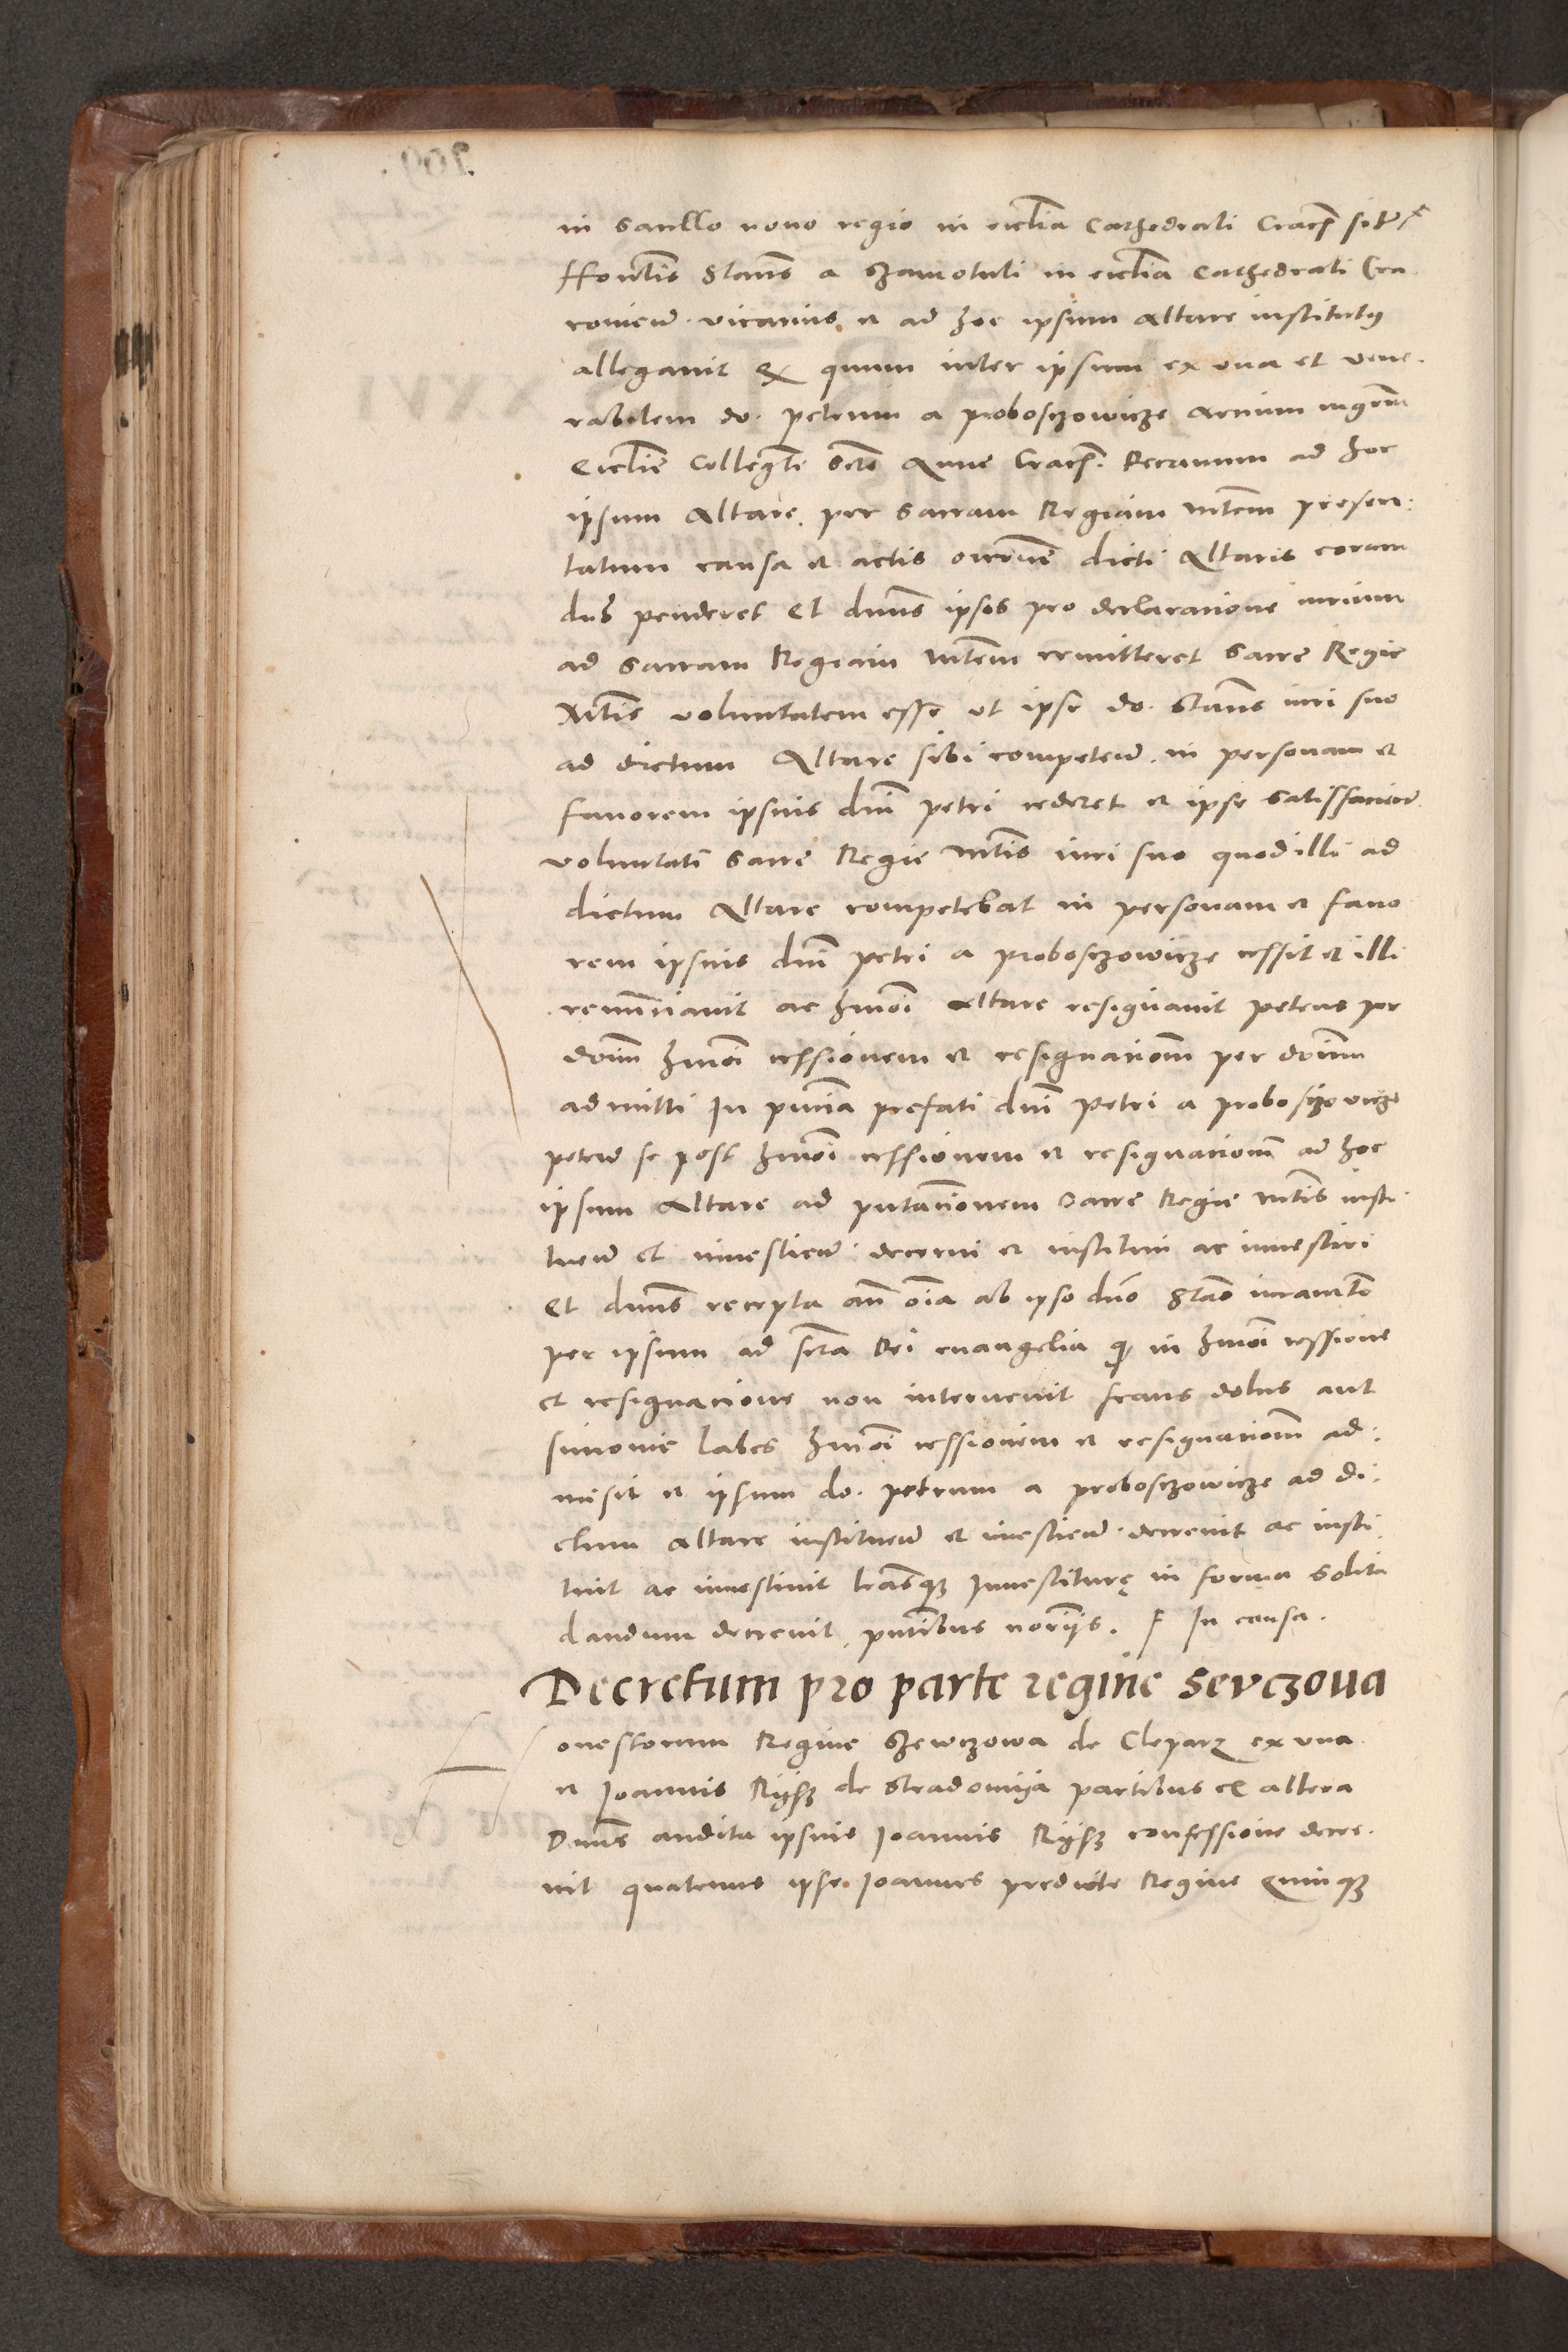 in sacello nouo regio in ecclia Cathedrali Crac sit
Honlis Stans a Szamotuli in ecclia Cathedrali Cra
couien. vicarius et ad hoc ipsum altare institutus
allegauit q quum inter ipsum ex vna et vene.
rabilem do. petrum a proboszczowicze arcium mgrm
Ecclie Collegte scte Anne Crac. Decanum ad hoc
ipsum Altare per sacram Regiam Mtem presen:
tatum causa et actis dicti Altaris coram
penderet Et dnus ipsos pro declaracione iurium
ad sacram Regiam Mtem remitteret sacre Regie
Mtis voluntatem esse vt ipse do. Stans iuri suo
ad dictum Altare sibi competen. in personam et
fauorem ipsius dni petri cederet et ipse satisfacien
voluntati sacre Regie Mtis iuri suo quod illi ad
dictum Altare competebat in personam et fauo
rem ipsius dni petri a proboszczowicze cessit et illi
renunciauit ac hmoi altare resignauit petens per
dnum hmoi cessionem et resignacionem per dnum
admitti In pncia prefati dni petri a proboszczowicze
peten se post hmoi cessionem et resignacionem ad hoc
ipsum altare ad pntacionem Sacre Regie Mtis insti
tuen et inuestien. decerni et institui ac inuestiri
Et dnus recepta an oia ab ipso dno Stao iuramto
per ipsum ad scta Dei euangelia q in hmoi cessione
et resignacione non interuenit fraus dolus aut
simonie labes hmoi cessionem et resignacionem ad:
misit et ipsum do. petrum a proboszczowicze ad di:
ctum altare instituen et inuestien. decreuit ac insti
tuit ac inuestiuit lrasq Inuestiturę in forma solita
dandum decreuit pntibus noriis. In causa.
Decretum pro parte regine sevczoua
onestorum Regine Szewczowa de Cleparz ex vna
et Joannis Ryss de Stradomija partibus ex altera
Dnus audita ipsius Joannis Ryss confessione decre.
uit quatenus ipse Joannes predicte Regine Quinq